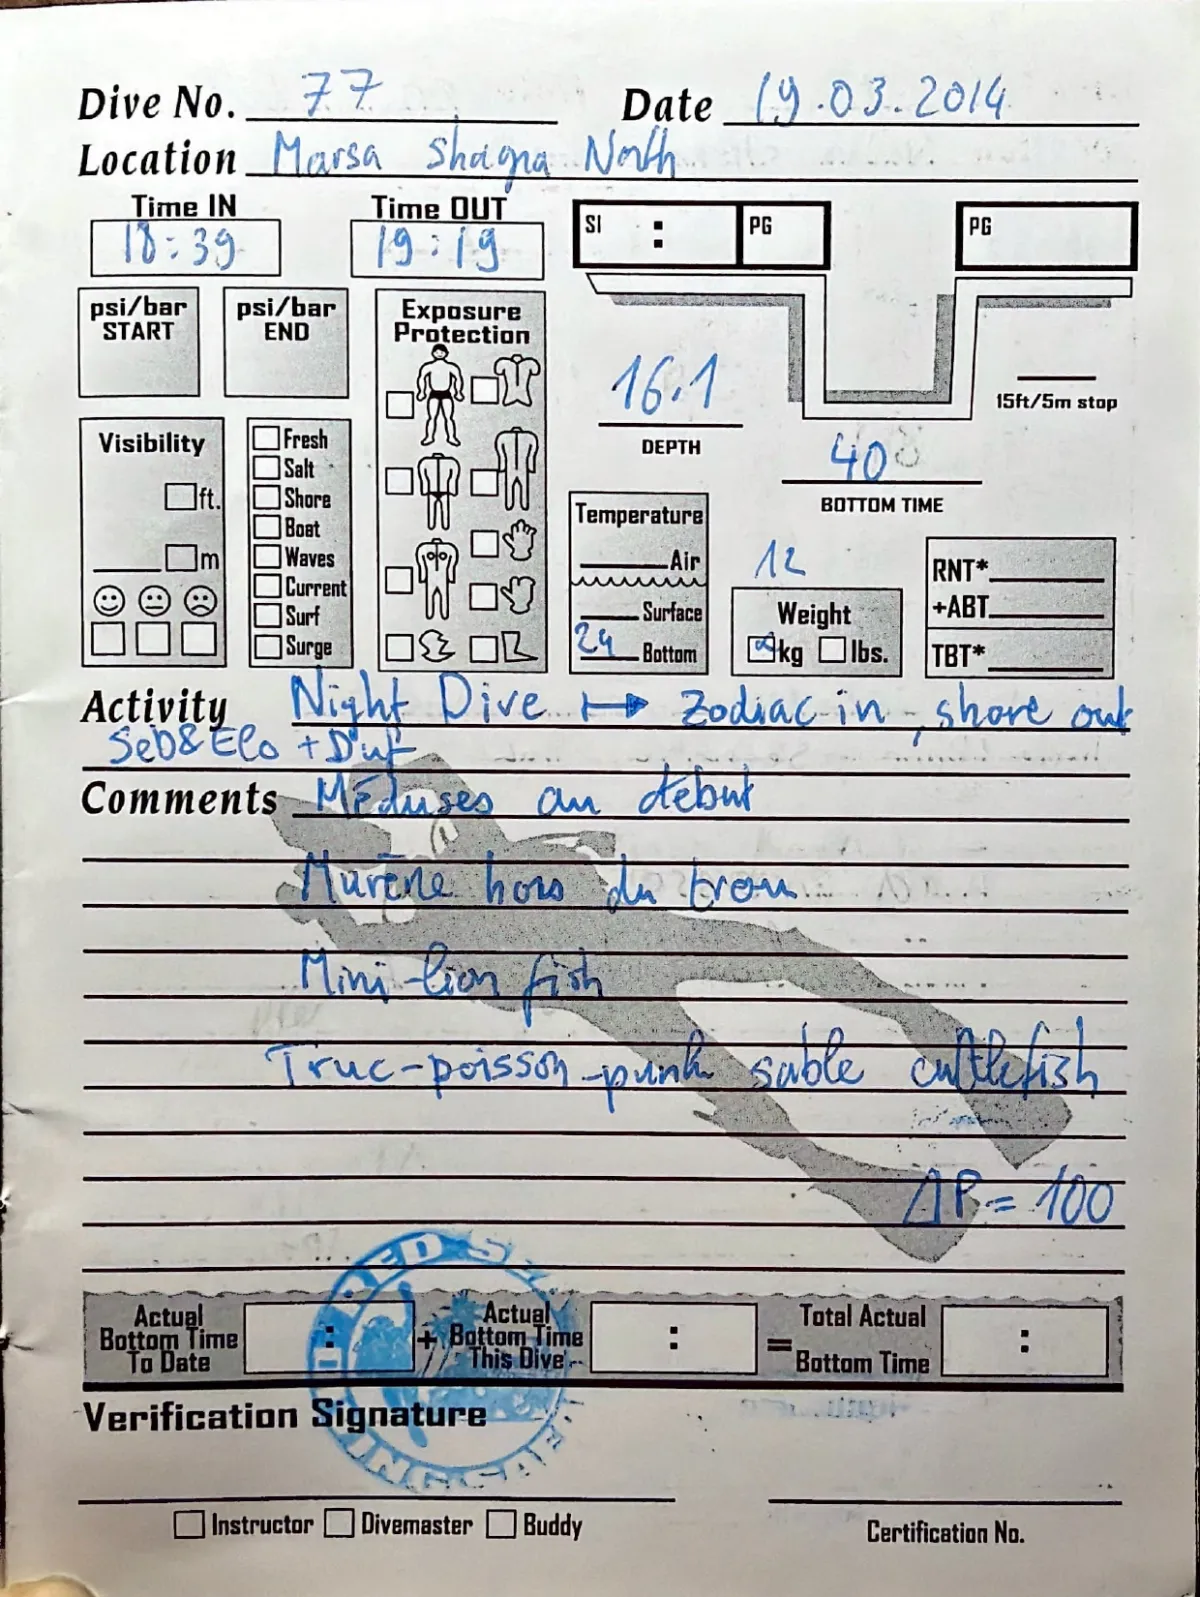 Dive No. 77 Date 19.03.2014
Location Marsa Shagra North
Time IN Time OUT
18:39 19:19
SI : PG PG
psi/bar START psi/bar END
Exposure Protection
16.1
DEPTH
15ft/5m stop
40
BOTTOM TIME
Visibility
ft.
m
Fresh
Salt
Shore
Boat
Waves
Current
Surf
Surge
Temperature
Air
Surface
24 Bottom
12
Weight
kg lbs.
RNT*
+ABT
TBT*
Activity Night Dive ↦ Zodiac in, shore out
Seb & Elo + Duf
Comments Méduses au début
Murène hors du trou
Mini-lion fish
Truc-poisson-punk sable cuttlefish
ΔP = 100
Actual Bottom Time To Date : + Actual Bottom Time This Dive : = Total Actual Bottom Time :
RED S
Verification Signature
Instructor Divemaster Buddy
Certification No.